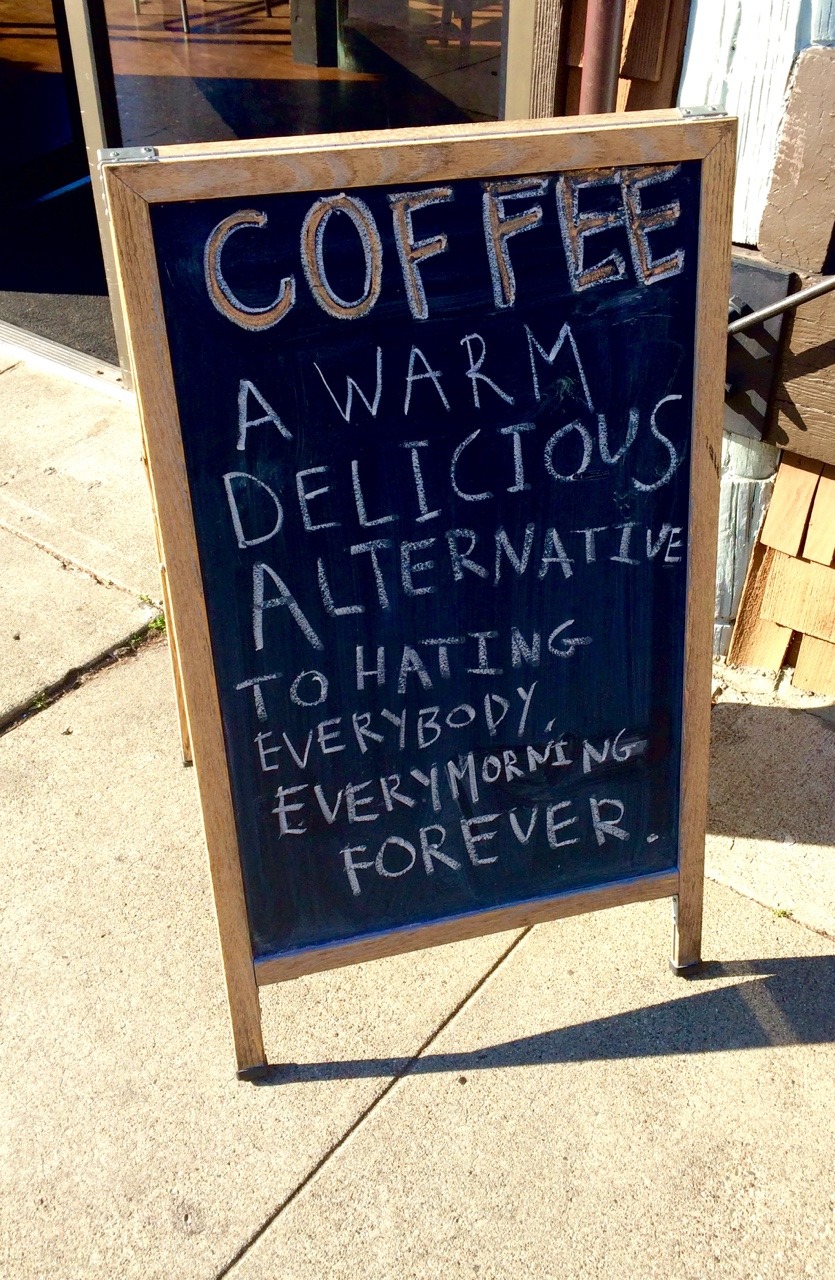 COFFEE
A WARM
DELICIOUS
ALTERNATIVE
TO HATING
EVERYBODY,
EVERYMORNING
FOREVER.